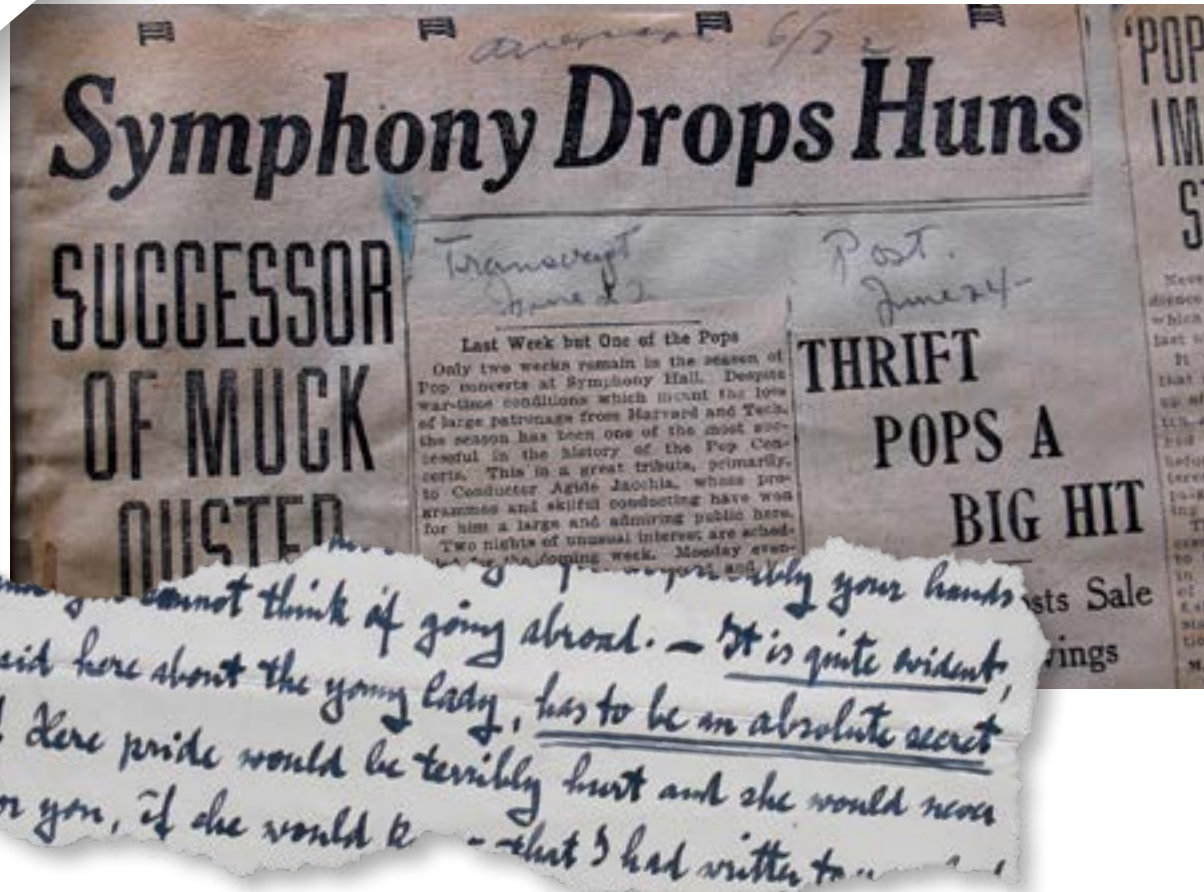 6/2
Symphony Drops Huns
SUCCESSOR
OF MUCK
OUSTED
Transcript
June 22
Last Week but One of the Pops
Only two weeks remain in the season of
Pop concerts at Symphony Hall. Despite
war-time conditions which meant the loss
of large patronage from Harvard and Tech,
the season has been one of the most suc-
cessful in the history of the Pop Con-
certs. This is a great tribute, primarily,
to Conductor Agide Jacchia, whose pro-
grammes and skilful conducting have won
for him a large and admiring public here.
Two nights of unusual interest are sched-
for the coming week. Monday even-
Post.
June 24-
THRIFT
POPS A
BIG HIT
sts Sale
vings
'POP
IM
S
your hands
cannot think of going abroad. — It is quite evident,
said here about the young lady, has to be an absolute secret
Here pride would be terribly hurt and she would never
or you, if she would that I had written to